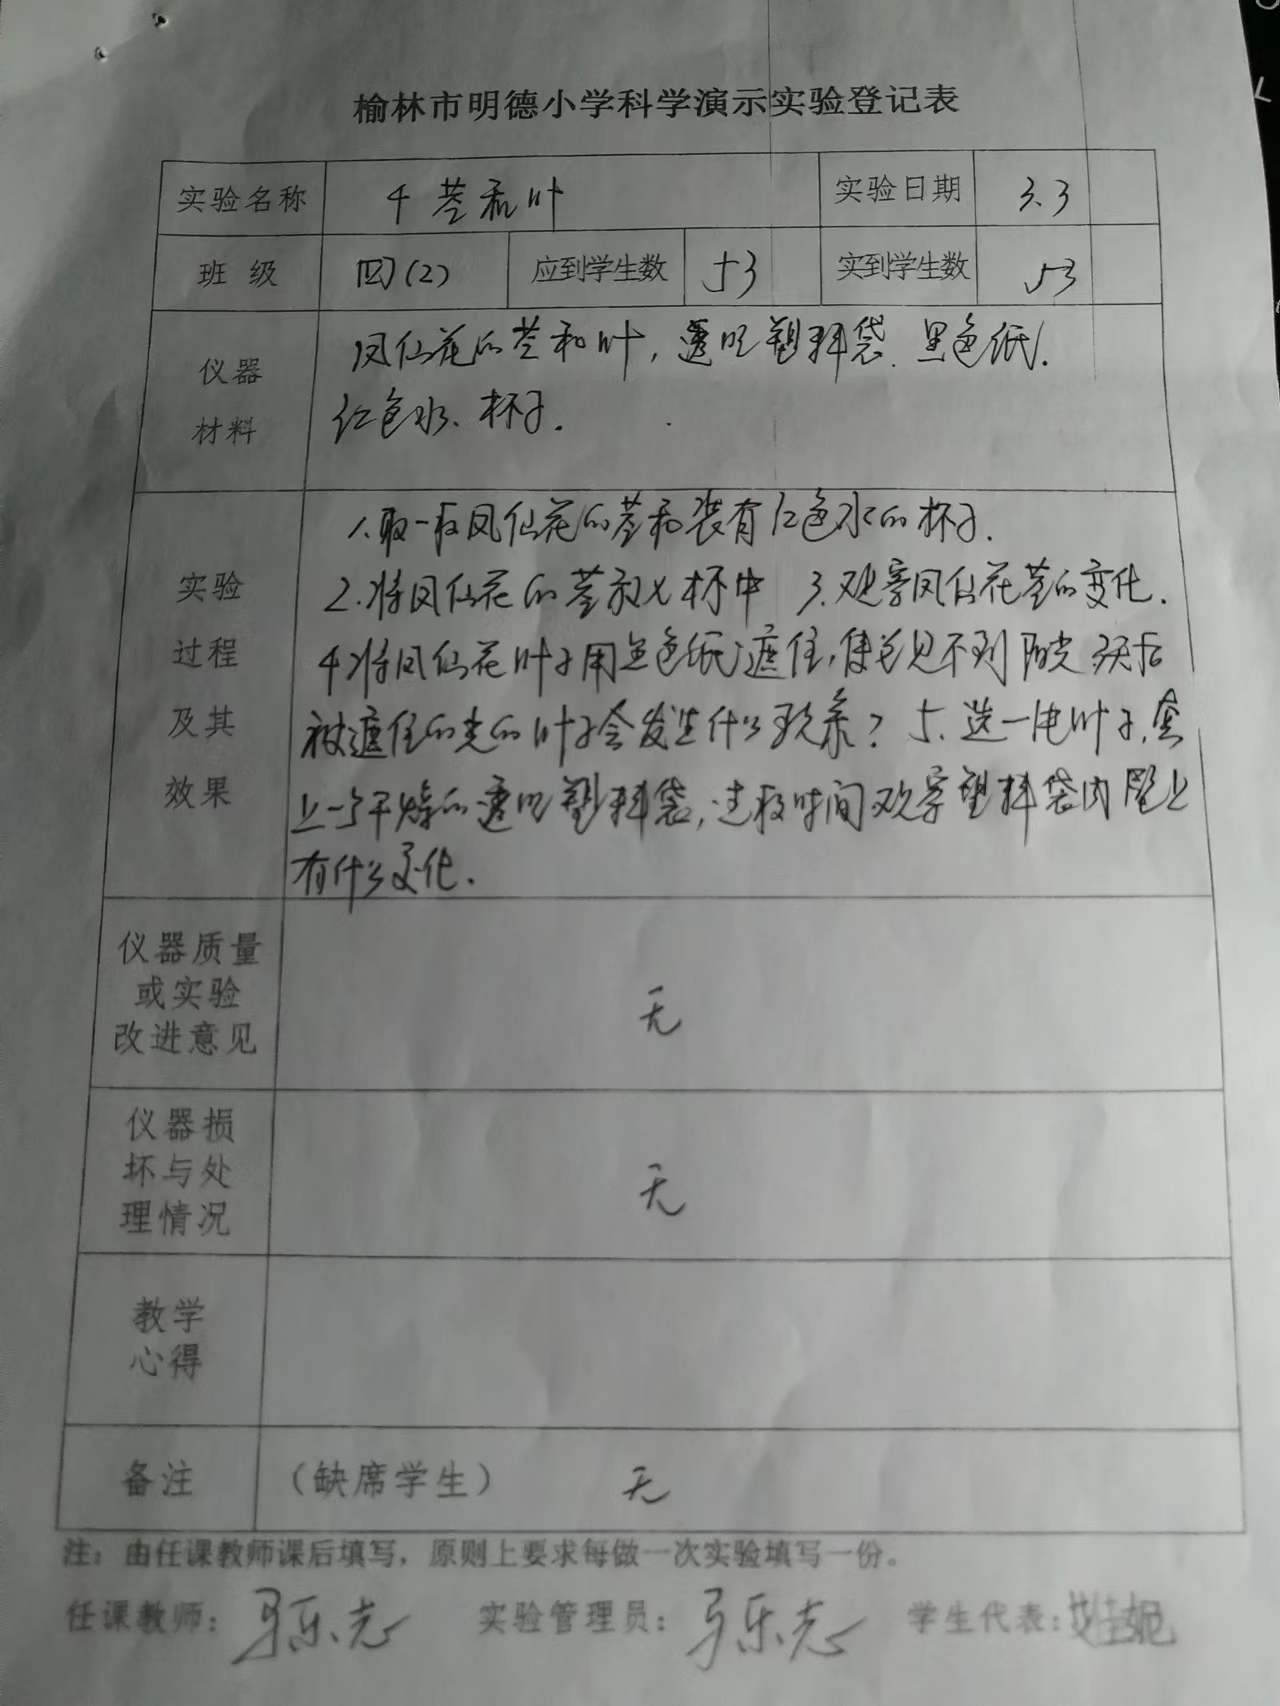 榆林市明德小学科学演示实验登记表
实验名称 4 茎和叶 实验日期 3.3
班 级 四(2) 应到学生数 53 实到学生数 53
仪器
材料
凤仙花的茎和叶,透明塑料袋、黑色纸、
红色水、杯子.
实验
过程
及其
效果
1.取一枝凤仙花的茎和装有红色水的杯子.
2.将凤仙花的茎放入杯中 3.观察凤仙花茎的变化.
4.将凤仙花叶子用黑色纸遮住,使它见不到阳光 天后
被遮住的光的叶子会发生什么现象? 5.选一 叶子,套
上一个干燥的透明塑料袋,过段时间观察塑料袋内壁上
有什么变化.
仪器质量
或实验
改进意见
无
仪器损
坏与处
理情况
无
教学
心得
备注 (缺席学生) 无
注:由任课教师课后填写,原则上要求每做一次实验填写一份。
任课教师: 实验管理员: 学生代表: